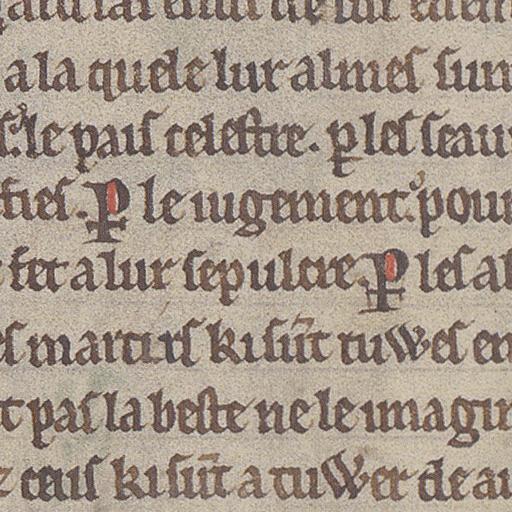 a la quele lur almes sun
le pais celestre. ꝑ les seau
sties. ꝑ le iugement. pour
fet a lur sepulcre ꝑ les al
es martirs ki sūt tuwes en
t pas la beste ne le imagin
ceus ki sūt a tuwer de au